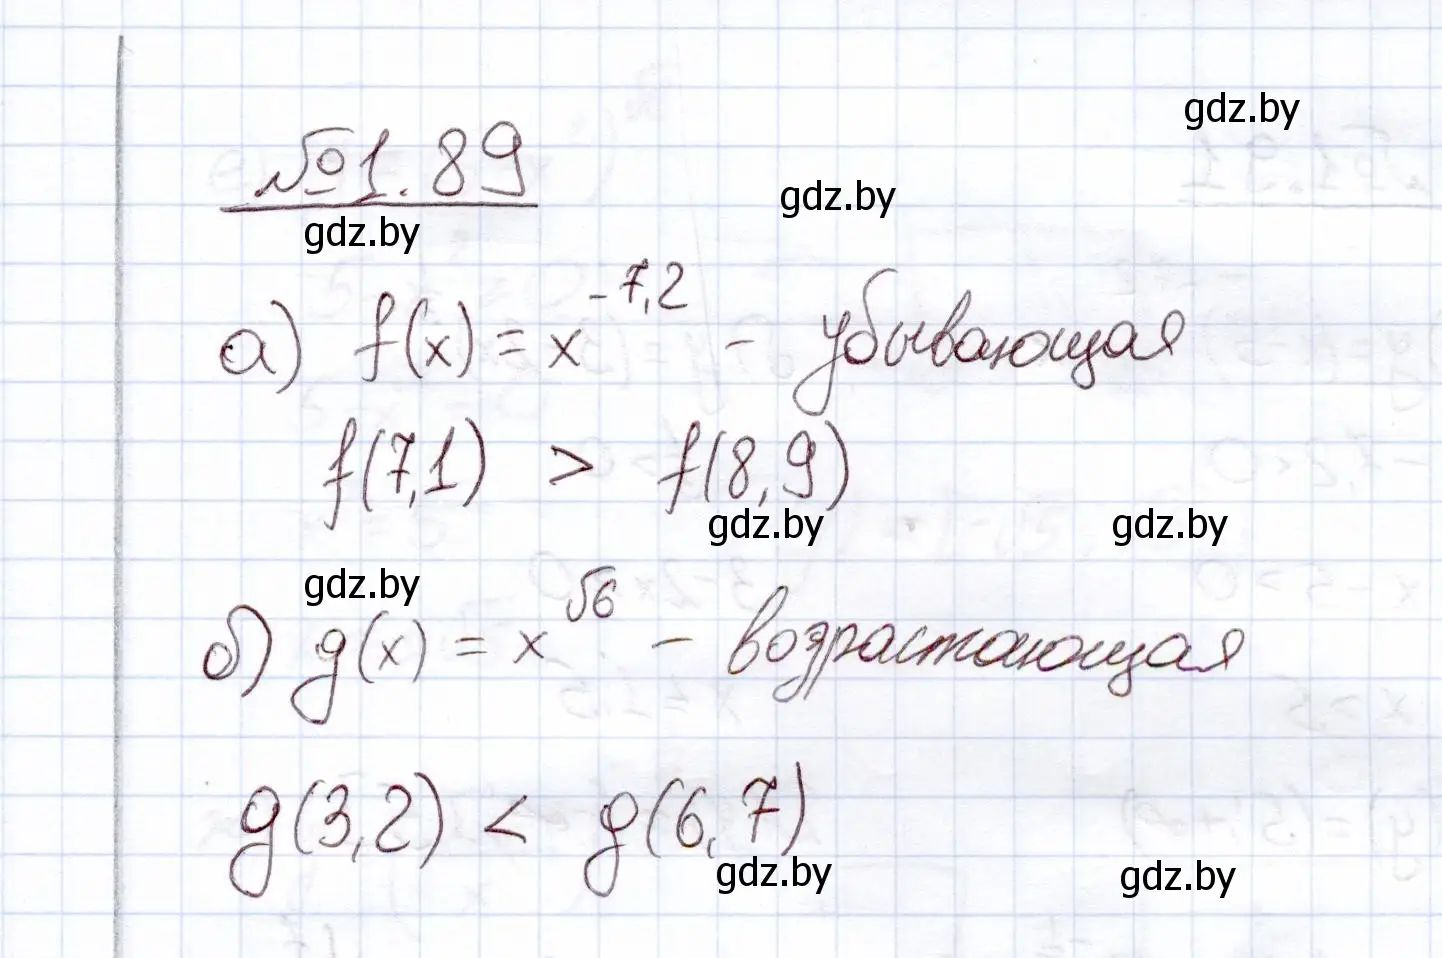 gdz.by
№1.89
gdz.by
gdz.by
а) f(x) = x^{-7,2} - убывающая
f(7,1) > f(8,9)
gdz.by gdz.by
gdz.by
б) g(x) = x^{√6} - возрастающая
g(3,2) < g(6,7)
gdz.by gdz.by